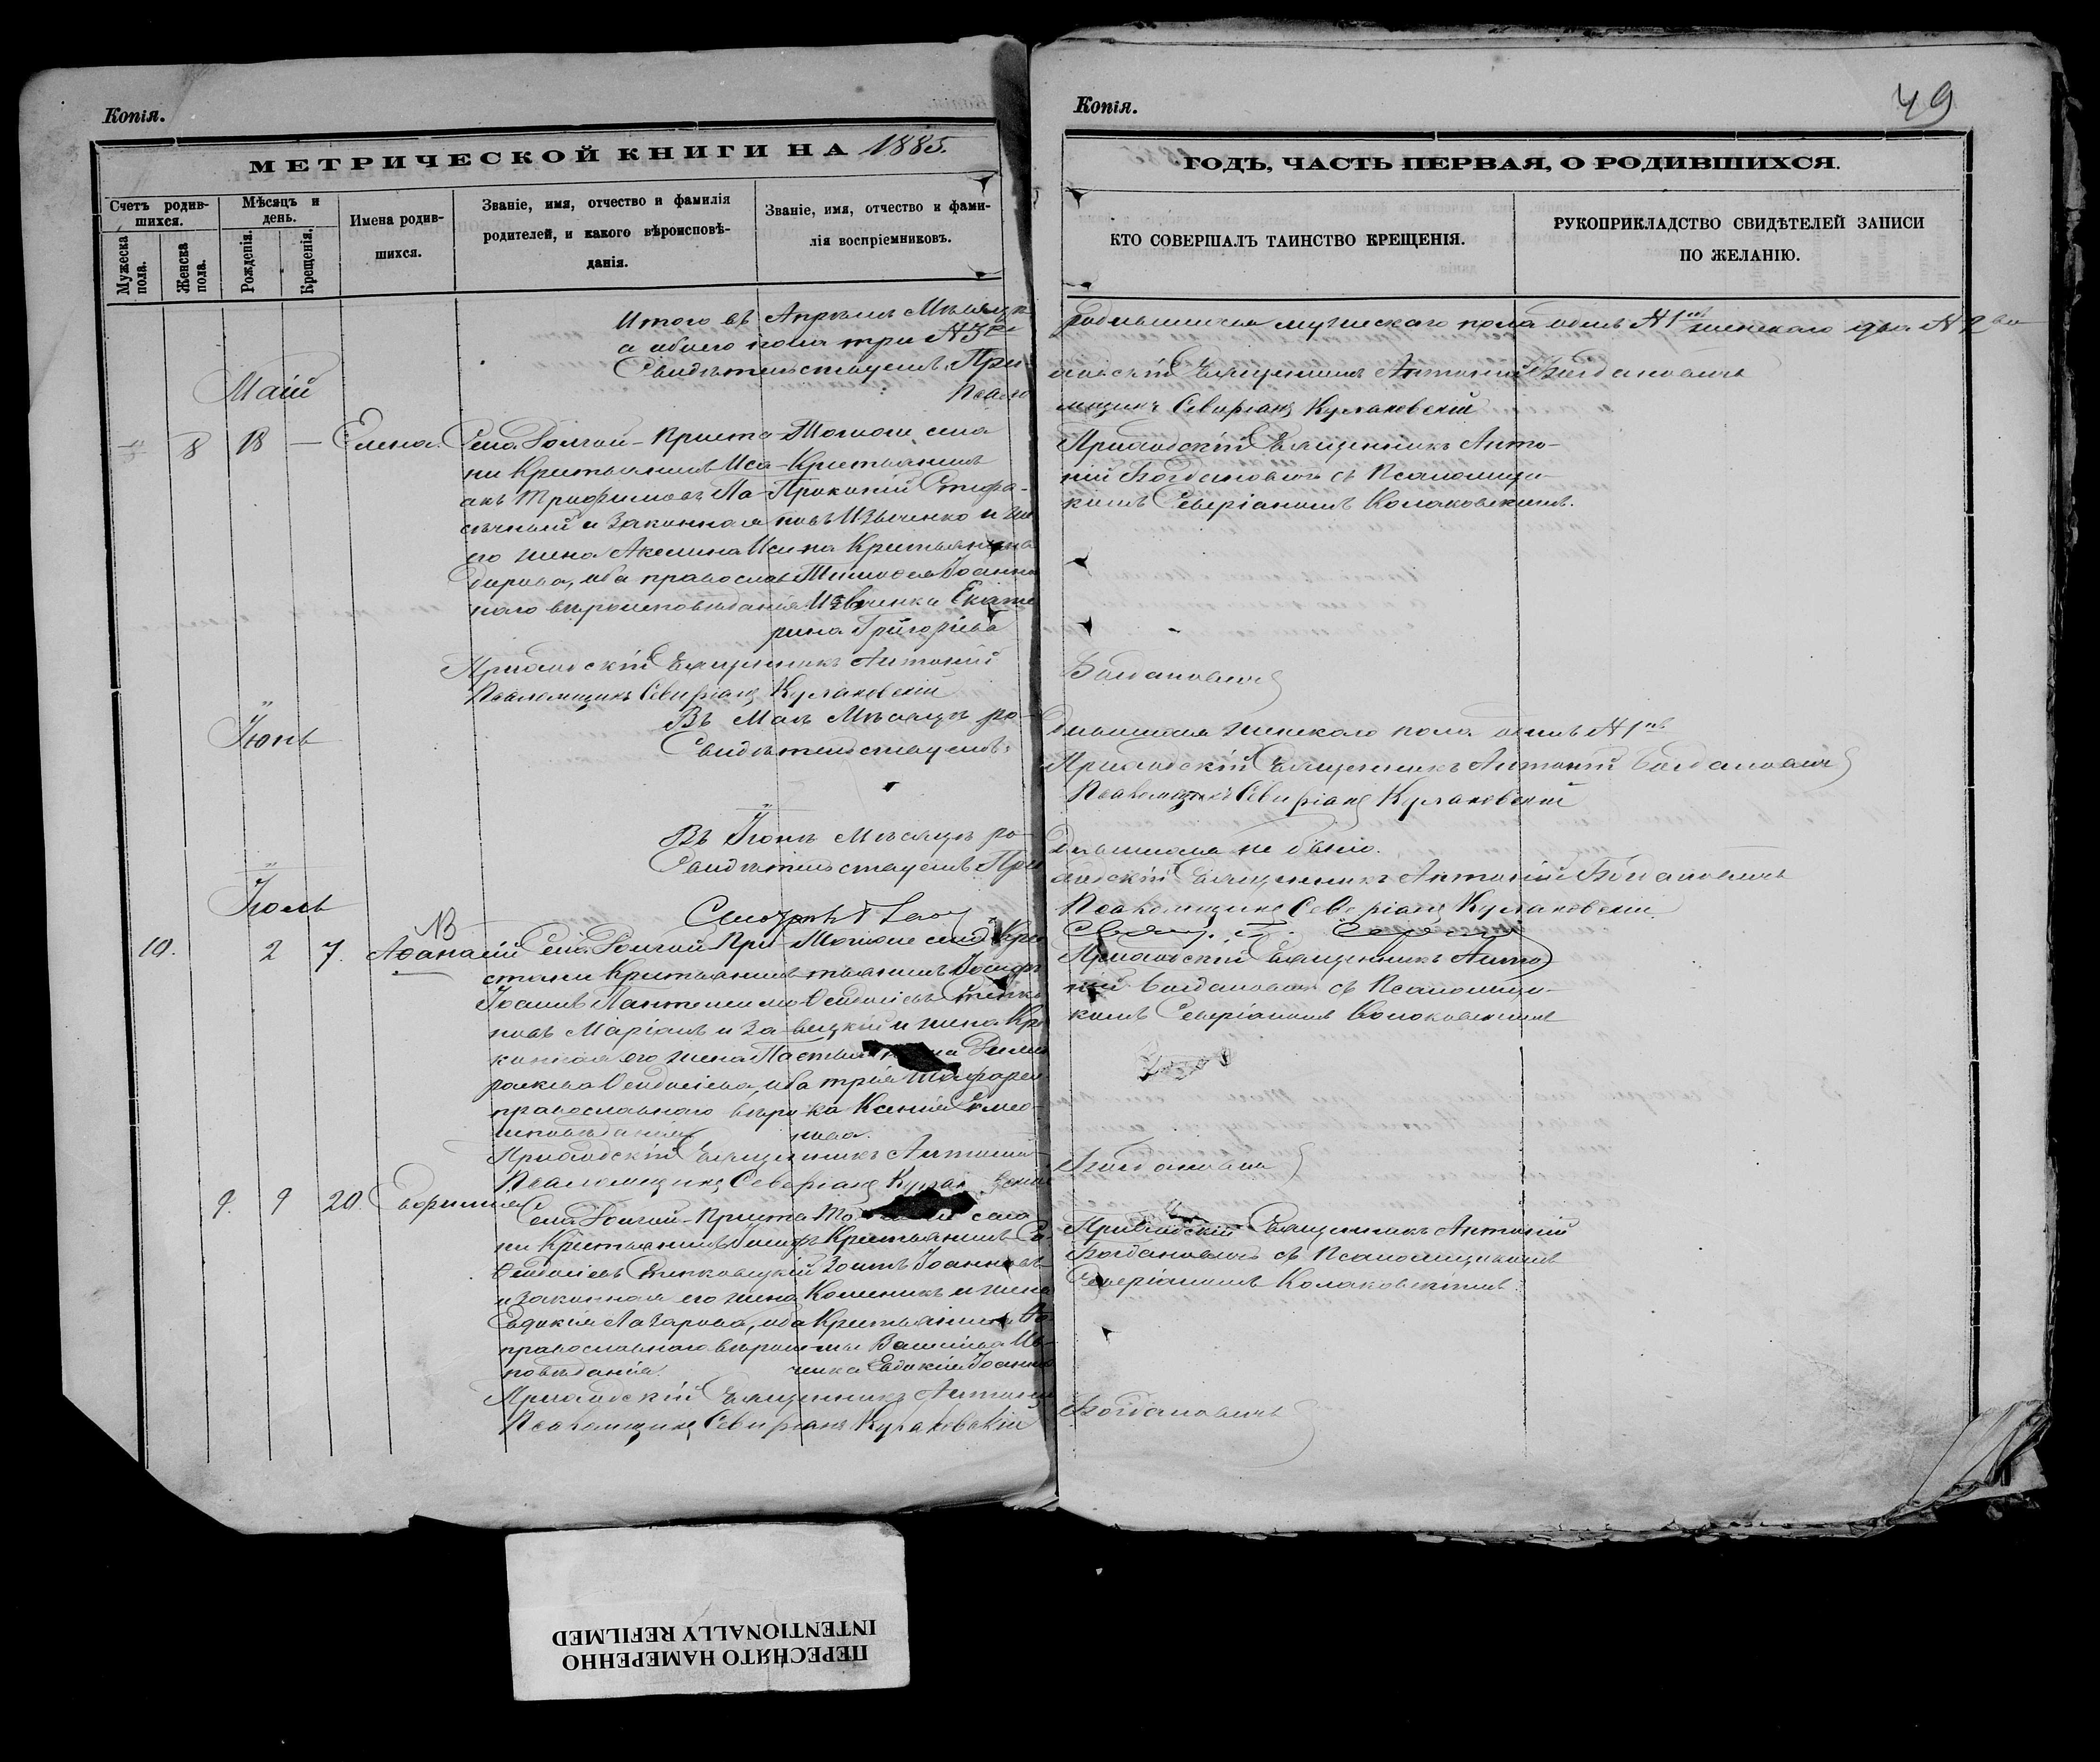 Копія.
МЕТРИЧЕСКОЙ КНИГИ НА 1885.
Счетъ родившихся.
Мужеска пола.
Женска пола.
Мѣсяцъ и день.
Рожденія.
Крещенія.
Имена родившихся.
Званіе, имя, отчество и фамилія
родителей, и какого вѣроисповѣ-
данія.
Званіе, имя, отчество и фами-
лія воспріемниковъ.
Итого въ Апрѣлѣ Мѣсяцѣ
обоего пола три №3
Свидѣтельствуемъ. При-
Псало
Маій
8 18 — Елена.
Села Долгой-Приста-
ни Крестьянинъ Иса-
акъ Трофимовъ Па-
сѣчный и законная
его жена Акелина Иси-
дорова, оба православ
наго вѣроисповѣданія
Того же села
Крестьянинъ
Прокопій Стефа-
новъ Извченко и
на Крестьянина
Тимофея Іоанно
Извченка Екате
рина Григоріева
Приходскій Священникъ Антоній
Псаломщикъ Северіанъ Кулаковскій
Іюнь
Въ Маѣ Мѣсяцѣ ро-
Свидѣтельствуемъ:
Въ Іюнѣ Мѣсяцѣ ро-
Свидѣтельствуемъ При
Іюль
NB
10. 2 7. Аѳанасій
Села Долгой При-
стани Крестьянинъ
Іоаннъ Пантелеимо
новъ Маріанъ и за-
конная его жена Па
раскева Ѳеодосіева, оба
православнаго вѣро
исповѣданія
Того же села Кре
стьянинъ Іосифъ
Ѳеодосіевъ
вецкій и жена Кре
Дими
трія
ка Ксенія
нова.
Приходскій Священникъ Антоній
Псаломщикъ Северіанъ
9. 9 20. Евфимія
Села Долгой-Приста
ни Крестьянинъ Іосифъ
Ѳеодосіевъ
и законная его жена
Евдокія Лазарова, оба
православнаго вѣроис-
повѣданія.
села
Крестьянинъ
Іоанновъ
и жена
Крестьянина
Василія
Евдокія Іоаннов
Приходскій Священникъ Антоній
Псаломщикъ Северіанъ Кулаковскій
Копія.
49
ГОДЪ, ЧАСТЬ ПЕРВАЯ, О РОДИВШИХСЯ.
КТО СОВЕРШАЛЪ ТАИНСТВО КРЕЩЕНІЯ.
РУКОПРИКЛАДСТВО СВИДѢТЕЛЕЙ ЗАПИСИ
ПО ЖЕЛАНІЮ.
родившихся мужескаго пола одинъ №1 женскаго два №2
ходскій Священникъ Антоній Богдановичъ
мщикъ Северіанъ Кулаковскій
Приходскій Священникъ Анто-
ній Богдановичъ съ Псаломщи-
комъ Северіаномъ Колаковскимъ.
Богдановичъ
дившихся женскаго пола одинъ №1
Приходскій Священникъ Антоній Богдановичъ
Псаломщикъ Северіанъ Кулаковскій
дившихся не было.
ходскій Священникъ Антоній Богдановичъ
Псаломщикъ Северіанъ Кулаковскій
Приходскій Священникъ Анто
ній Богдановичъ съ Псаломщи-
комъ Северіаномъ Колаковскимъ
Богдановичъ
Приходскій Священникъ Антоній
Богдановичъ съ Псаломщикомъ
Северіаномъ Колаковскимъ.
Богдановичъ
ПЕРЕСНЯТО НАМЕРЕННО
INTENTIONALLY REFILMED